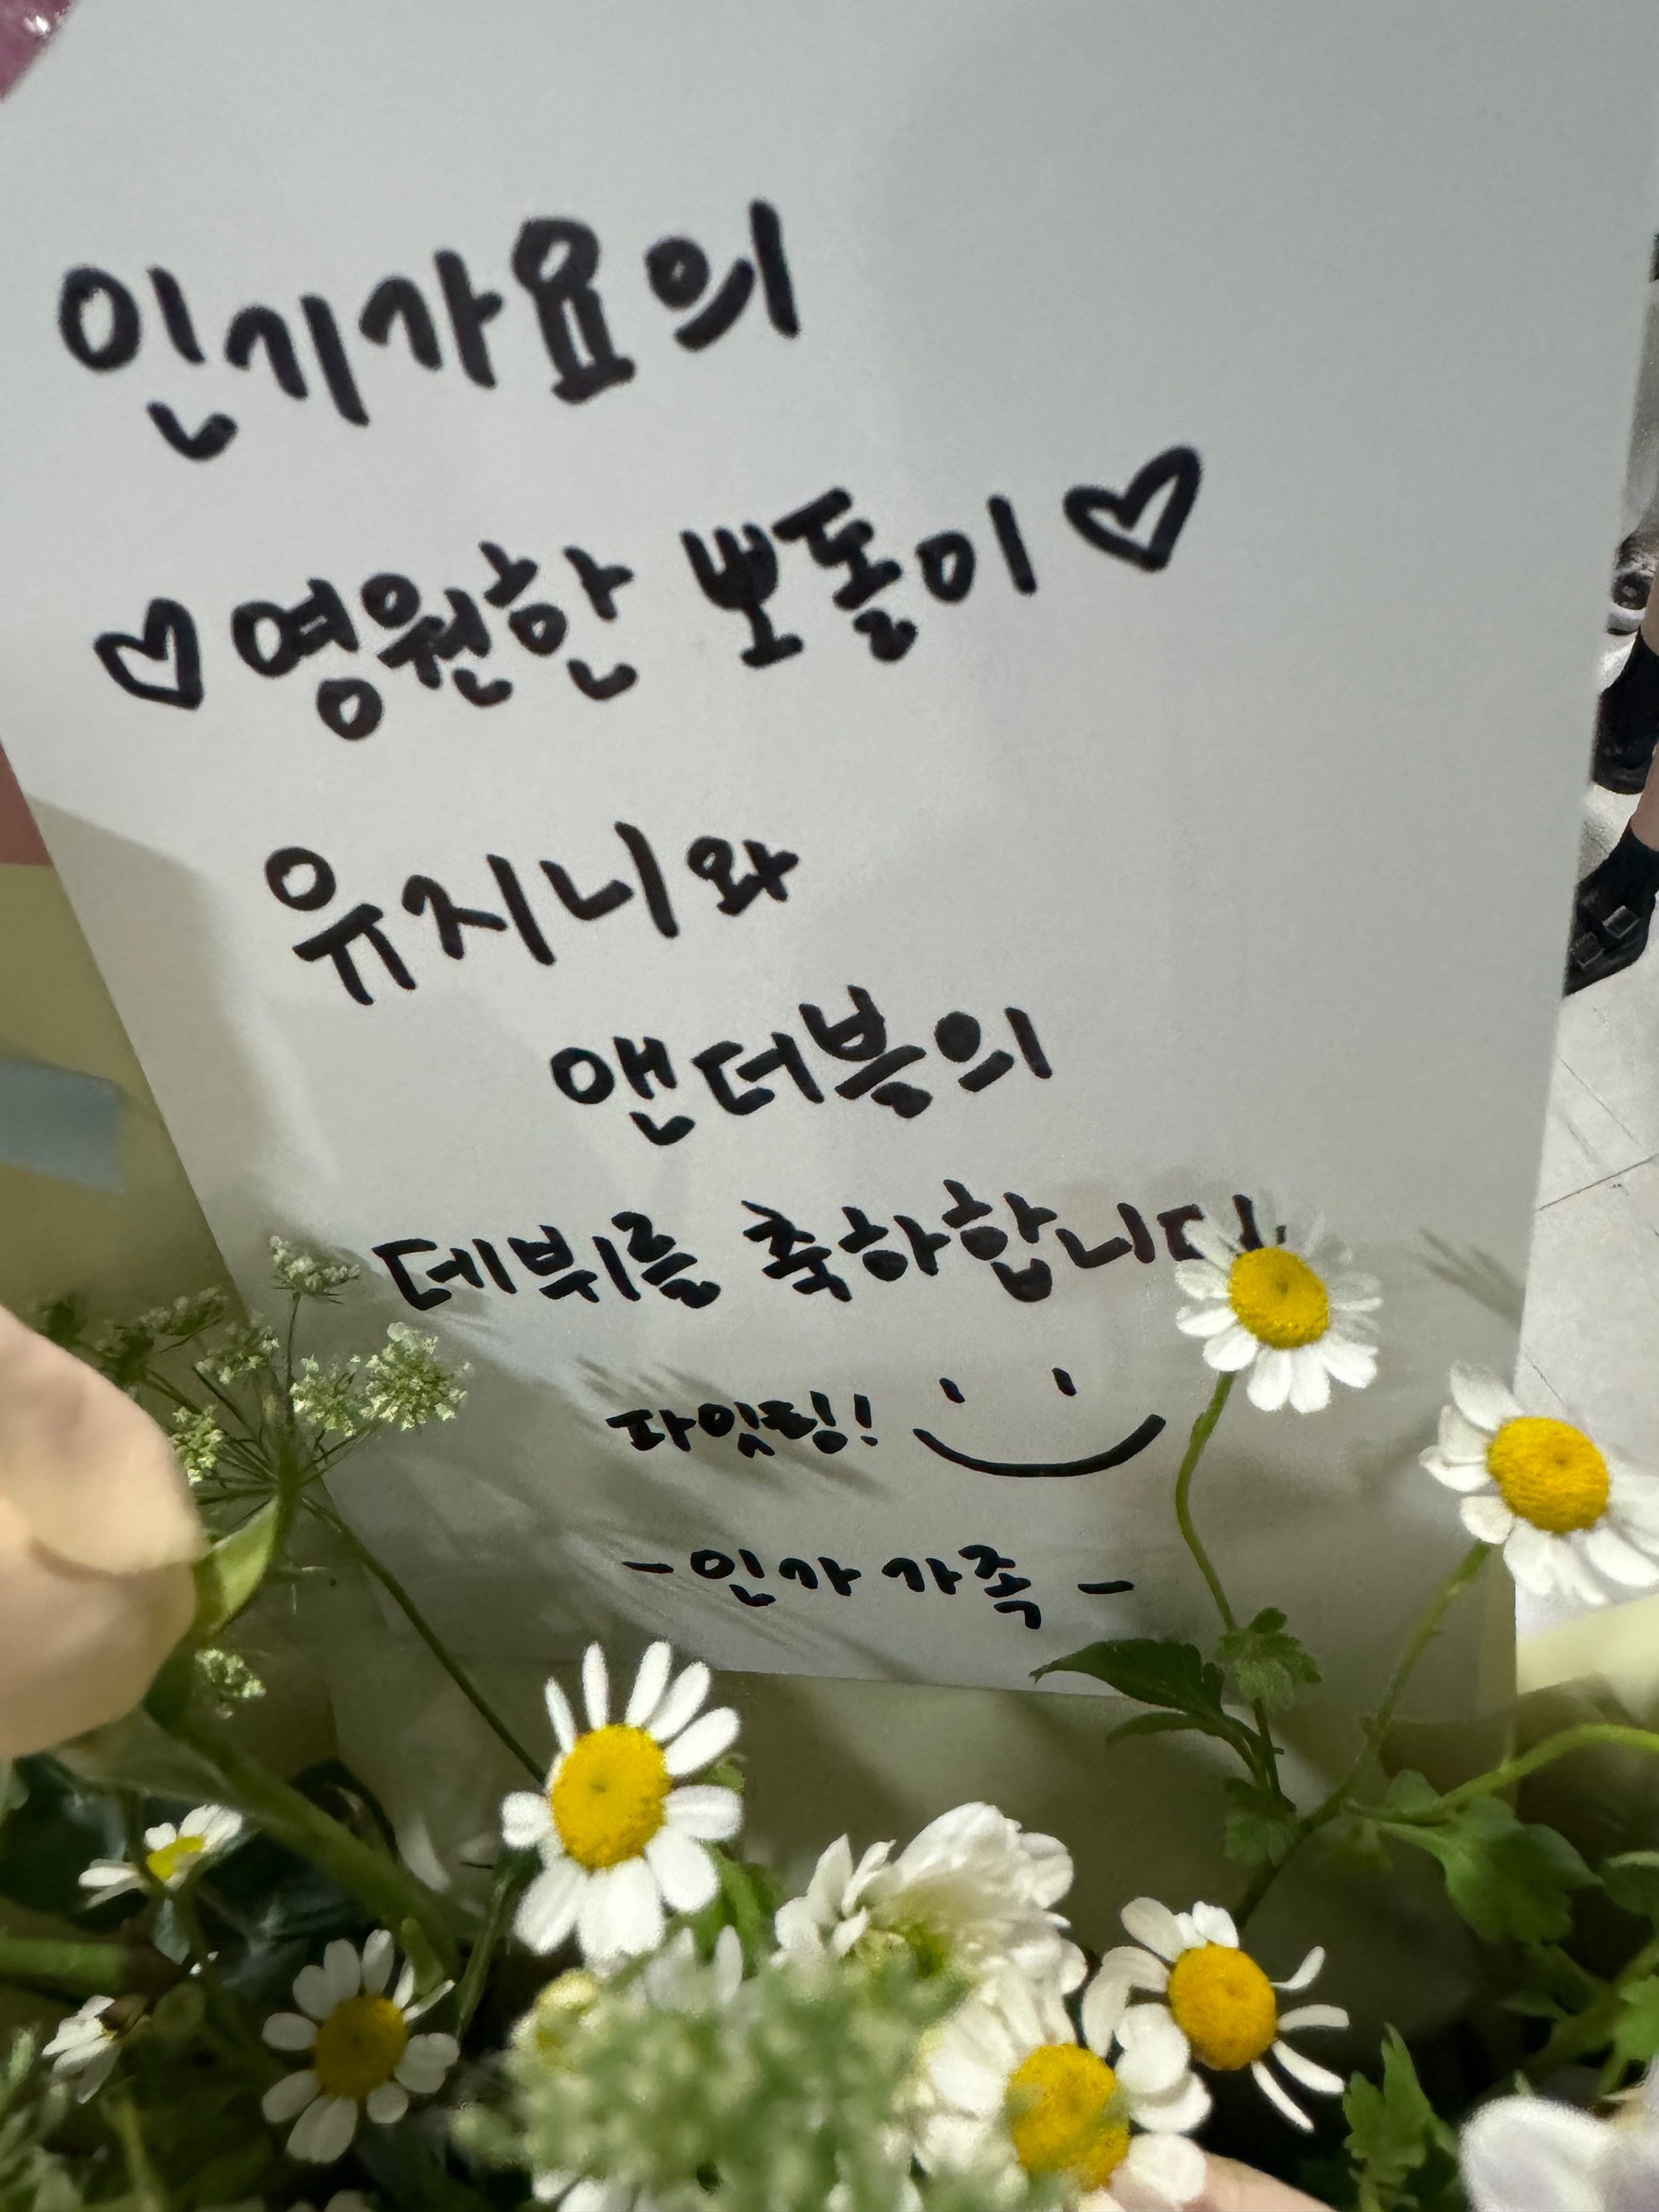 인기가요의
♡영원한 뽀돌이♡
유지니와
앤더블의
데뷔를 축하합니다
파잇팅!
-인가 가족-